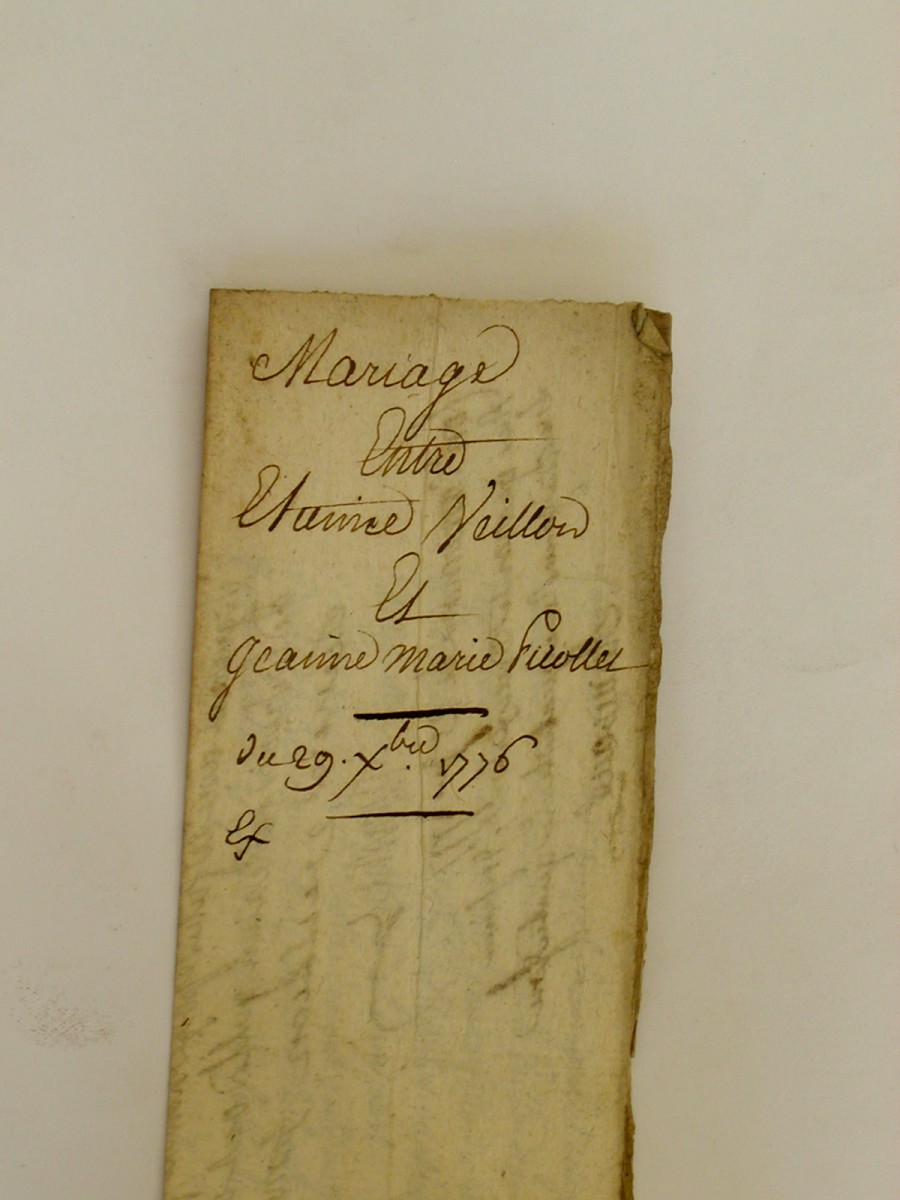 Mariage
Entre
Etienne Veillon
Et
Jeanne marie
du 29. Xbre. 1776
Ex